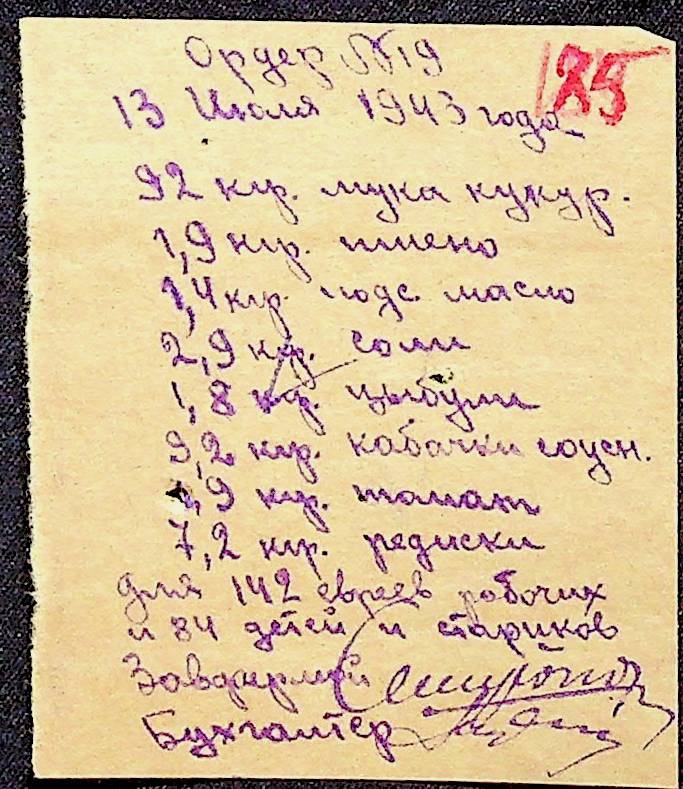 Ордер №19
185
13 Июля 1943 года
92 кгр. мука кукур.
1,9 кгр. пшено
1,4 кгр. подс. масло
2,9 кгр. соли
1,8 кгр. цыбули
9,2 кгр. кабачки соусн.
,9 кгр. томат
7,2 кгр. редиски
для 142 евреев рабочих
и 84 детей и стариков
Завфермой
Бухгалтер